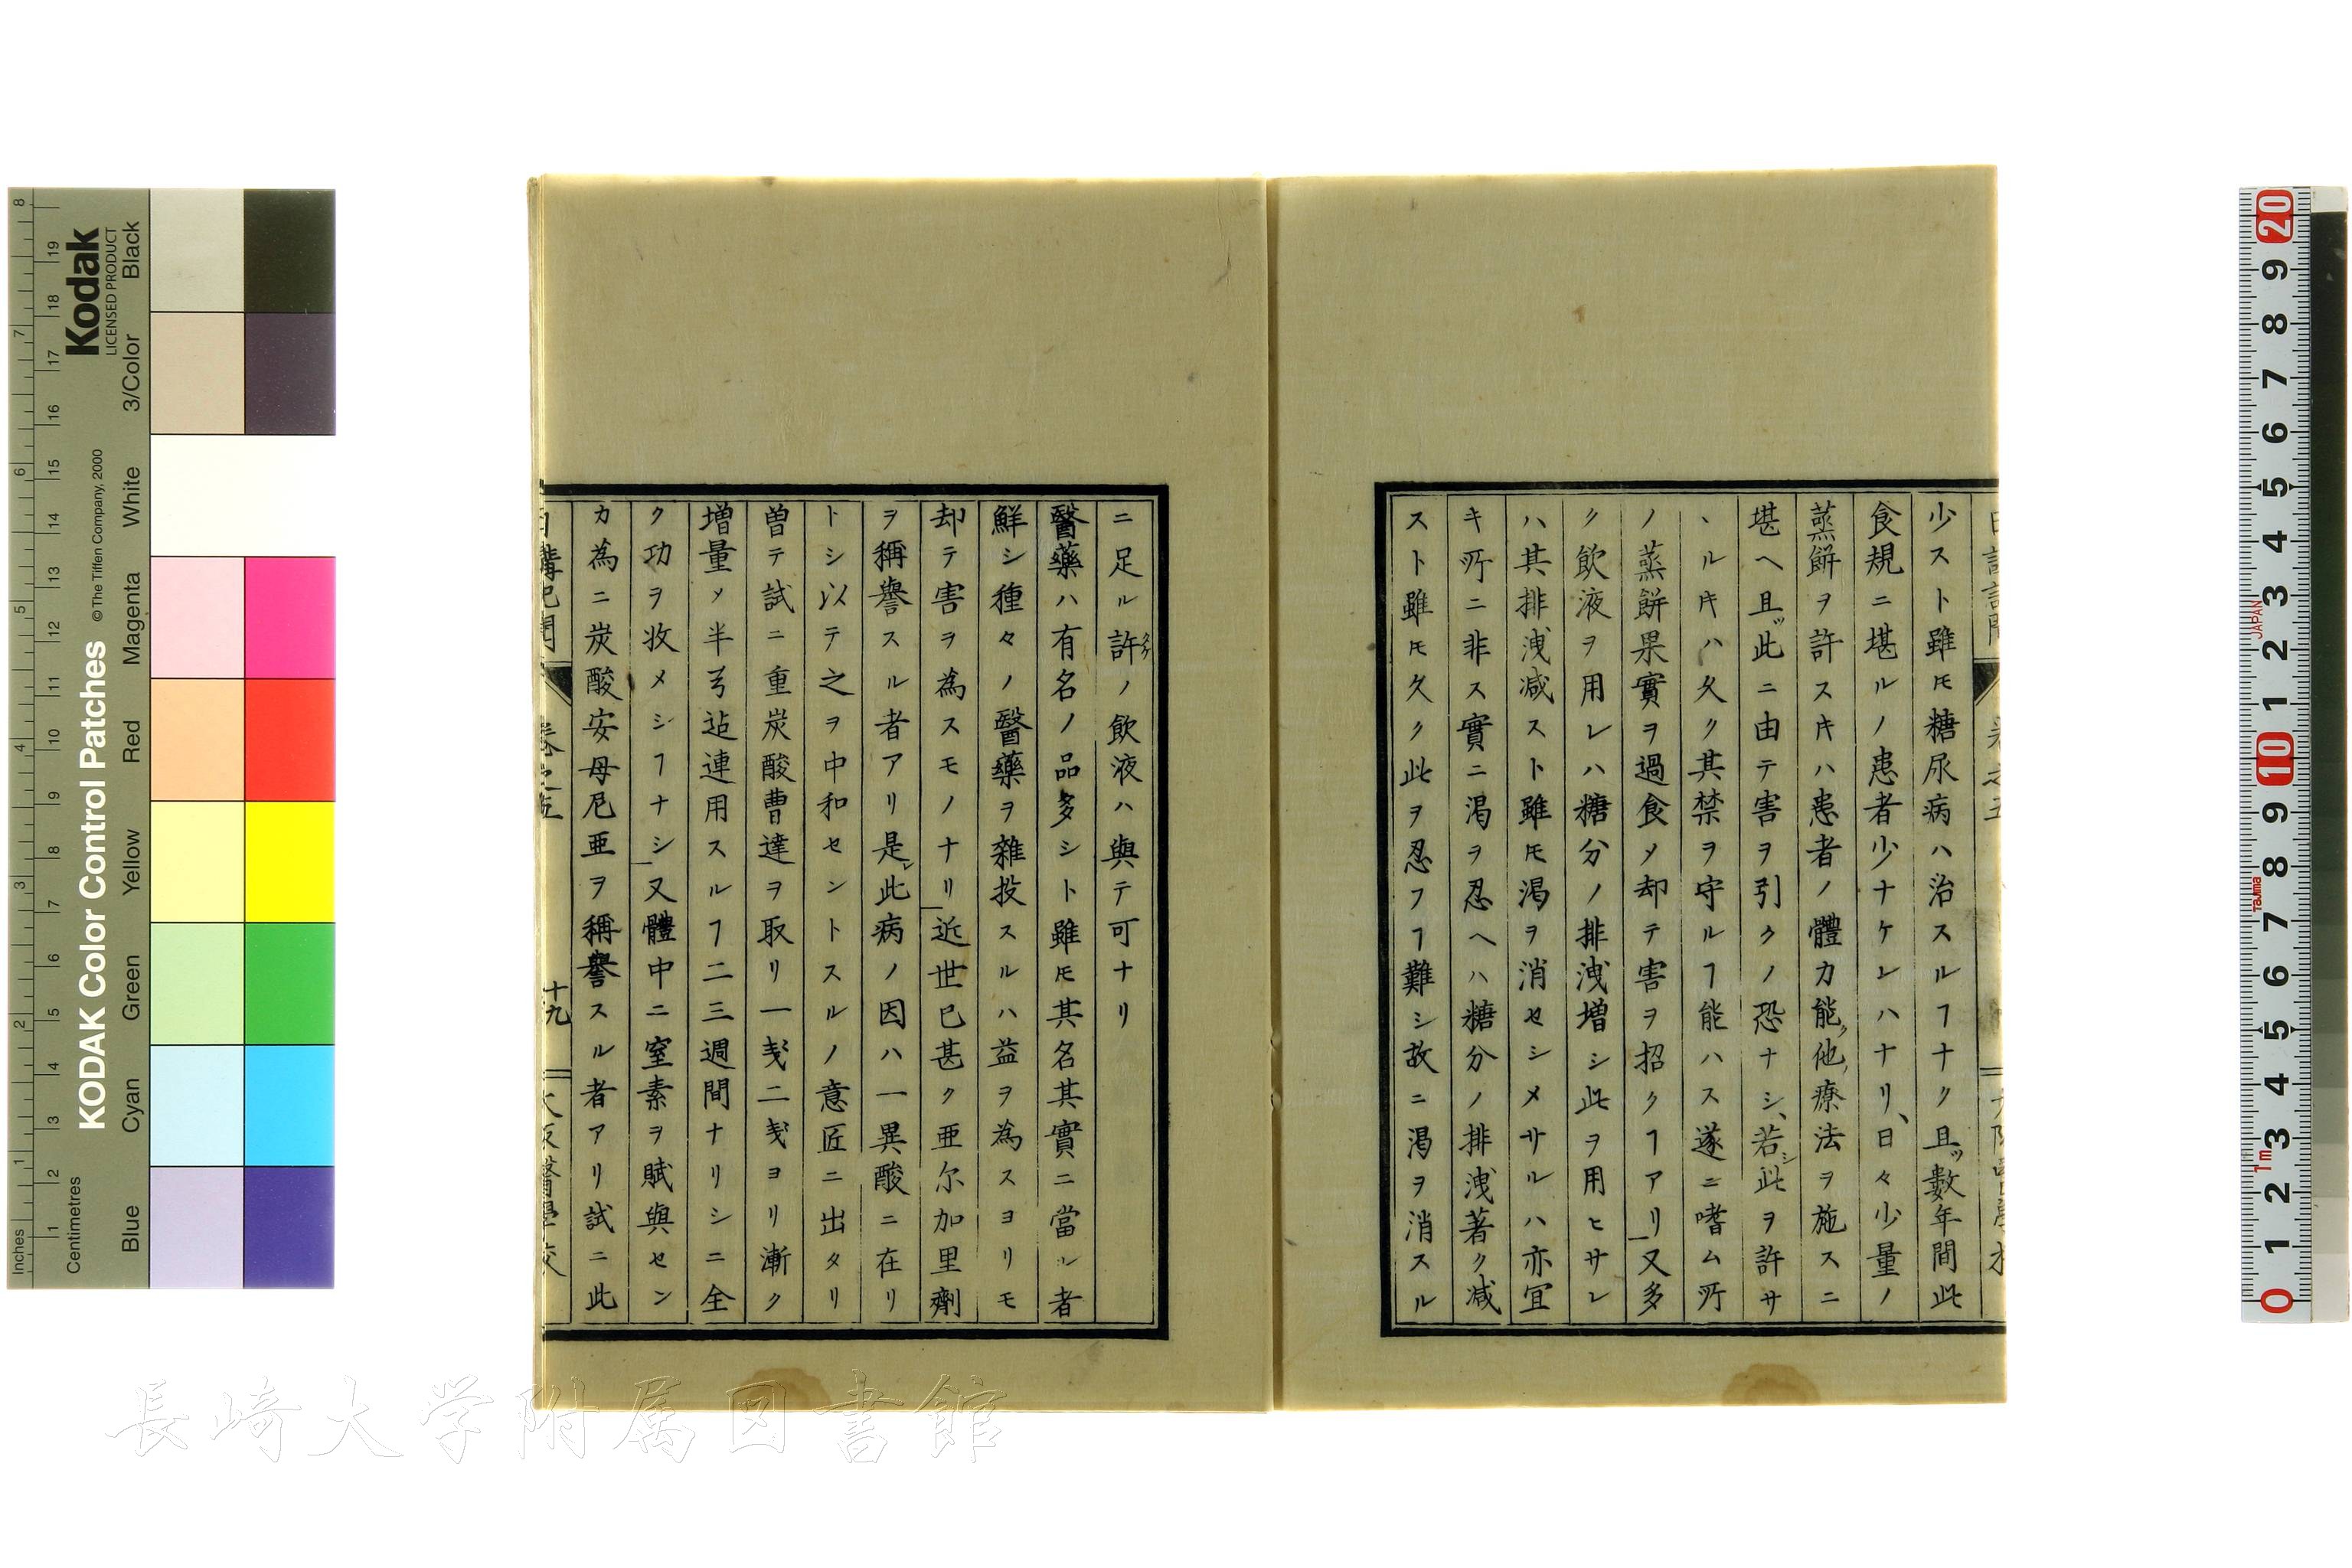 少スト雖𪜈糖尿病ハ治スルヿナク且ツ數年間此
食規ニ堪ルノ患者少ナケレハナリ、日々少量ノ
蒸餅ヲ許スキハ患者ノ體力能ク他ノ療法ヲ施スニ
堪ヘ且ツ此ニ由テ害ヲ引クノ恐ナシ、若シ此ヲ許サ
、ルキハ久ク其禁ヲ守ルヿ能ハス遂ニ嗜ム所
ノ蒸餅果實ヲ過食メ却テ害ヲ招クヿアリ又多
ク飲液ヲ用レハ糖分ノ排洩増シ此ヲ用ヒサレ
ハ其排洩減スト雖𪜈渇ヲ消セシメサルハ亦宜
キ所ニ非ス實ニ渇ヲ忍ヘハ糖分ノ排洩著ク減
スト雖𪜈久ク此ヲ忍フヿ難シ故ニ渇ヲ消スル
ニ足ル許ノ飲液ハ與テ可ナリ
醫藥ハ有名ノ品多シト雖𪜈其名其實ニ當ル者
鮮シ種々ノ醫藥ヲ雜投スルハ益ヲ為スヨリモ
却テ害ヲ為スモノナリ近世已甚ク亜尔加里劑
ヲ稱譽スル者アリ是レ此病ノ因ハ一異酸ニ在リ
トシ以テ之ヲ中和セントスルノ意匠ニ出タリ
曽テ試ニ重炭酸曹達ヲ取リ一戔二戔ヨリ漸ク
増量メ半弓迠連用スルヿ二三週間ナリシニ全
ク功ヲ收メシヿナシ又體中ニ窒素ヲ賦與セン
カ為ニ炭酸安母尼亜ヲ稱譽スル者アリ試ニ此
日講記聞 卷之五 十九 大阪醫學校
Kodak
LICENSED PRODUCT
KODAK Color Control Patches
©The Tiffen Company, 2000
Inches
Centimetres
Blue Cyan Green Yellow Red Magenta White 3/Color Black
JAPAN
Tajima
1m
長崎大学附属図書館